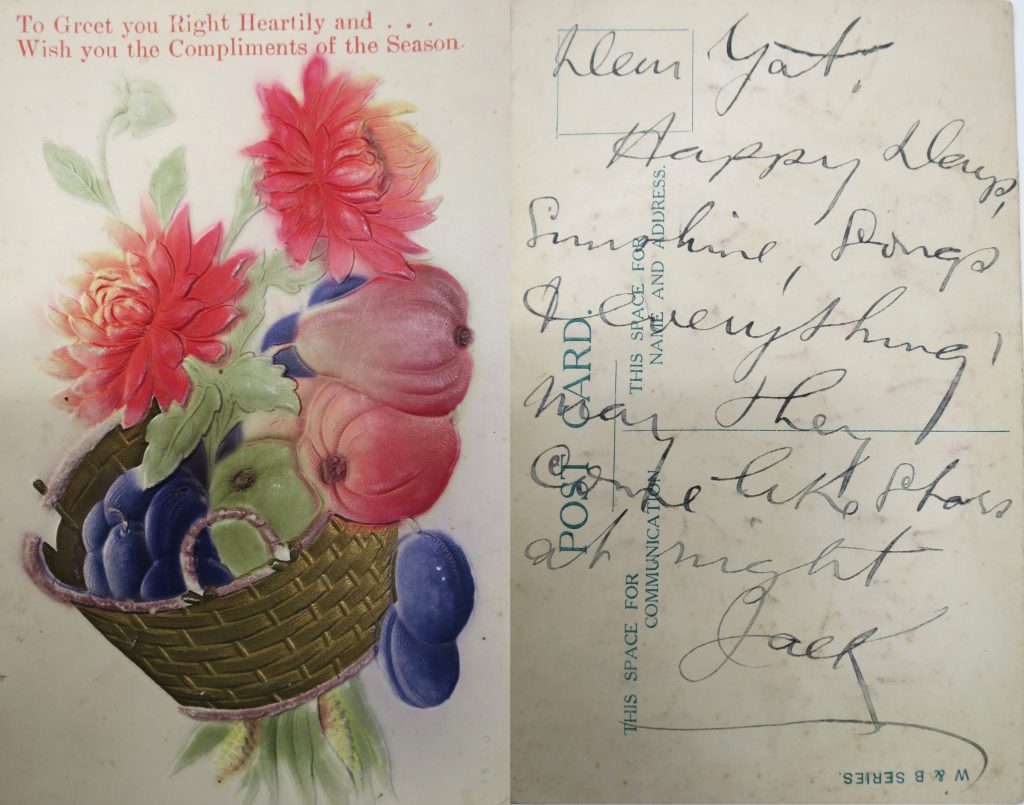 To Greet you Right Heartily and . . .
Wish you the Compliments of the Season.
Dear Yat,
Happy Days,
Sunshine, Songs
& everything,
may they
Come like Stars
at night
Jack
POST CARD.
THIS SPACE FOR
NAME AND ADDRESS.
THIS SPACE FOR
COMMUNICATION
W & B SERIES.